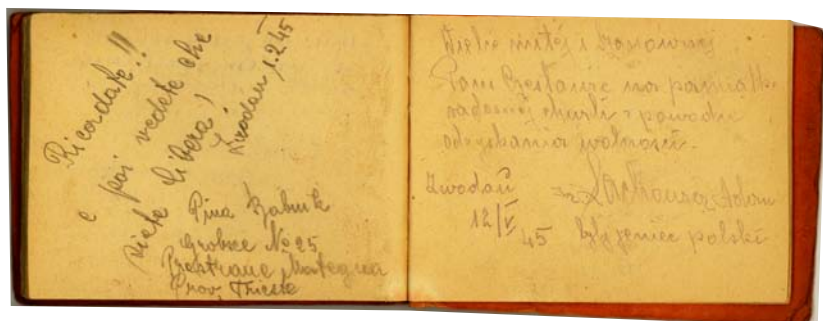 Ricordate!!
e poi vedete che
siete libera!
Zwodau 1.2.45
Pina Žabnik
Grobice No 25
Prestrane Mategna
Prov. Trieste
Wielce miłej i Szanownej
Pani Czesławie na pamiątkę
radosnej chwili z powodu
odzyskania wolności.
Zwodau
12/V 45
Adam
były jeniec polski